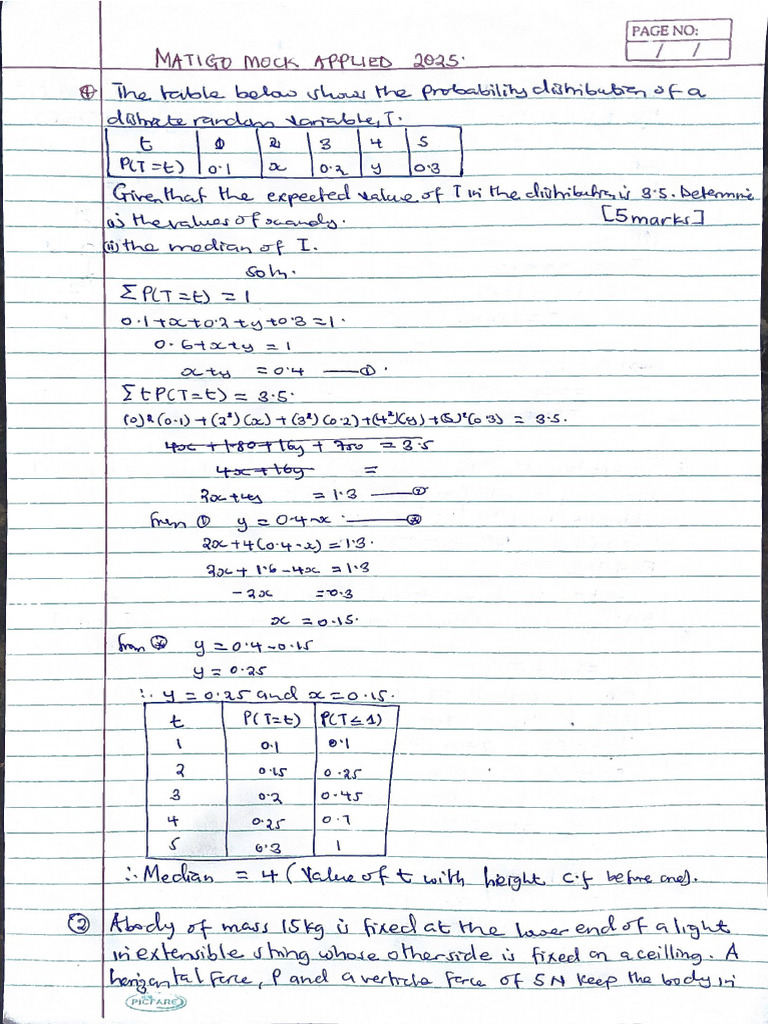 PAGE NO:
/ /
MATIGO MOCK APPLIED 2025.
① The table below shows the probability distribution of a
distrate random variable, T.
t 1 2 3 4 5
P(T=t) 0.1 x 0.2 y 0.3
Given that the expected value of T in the distribution is 3.5. Determine
i) the values of x and y. [5 marks]
(ii) the median of T.
Soln.
ΣP(T=t) = 1
0.1+x+0.2+y+0.3=1.
0.6+x+y = 1
x+y = 0.4 — ①.
ΣtP(T=t) = 3.5.
(0)²(0.1)+(2²)(x)+(3²)(0.2)+(4²)(y)+(5)²(0.3) = 3.5.
4x + 1.80+16y + 750 = 3.5
4x+16y =
2x+4y = 1.3 — ②
from ① y = 0.4-x. — ③
2x+4(0.4-x) = 1.3.
2x+1.6-4x = 1.3
-2x = -0.3
x = 0.15.
from ③ y = 0.4-0.15
y = 0.25
∴ y = 0.25 and x = 0.15.
t P(T=t) P(T≤1)
1 0.1 0.1
2 0.15 0.25
3 0.2 0.45
4 0.25 0.7
5 0.3 1
∴ Median = 4 (Value of t with height c.f before one).
② A body of mass 15kg is fixed at the lower end of a light
in extensible string whose otherside is fixed on a ceilling. A
horizantal force, P and a verticle force of 5N keep the body in
PICFARE